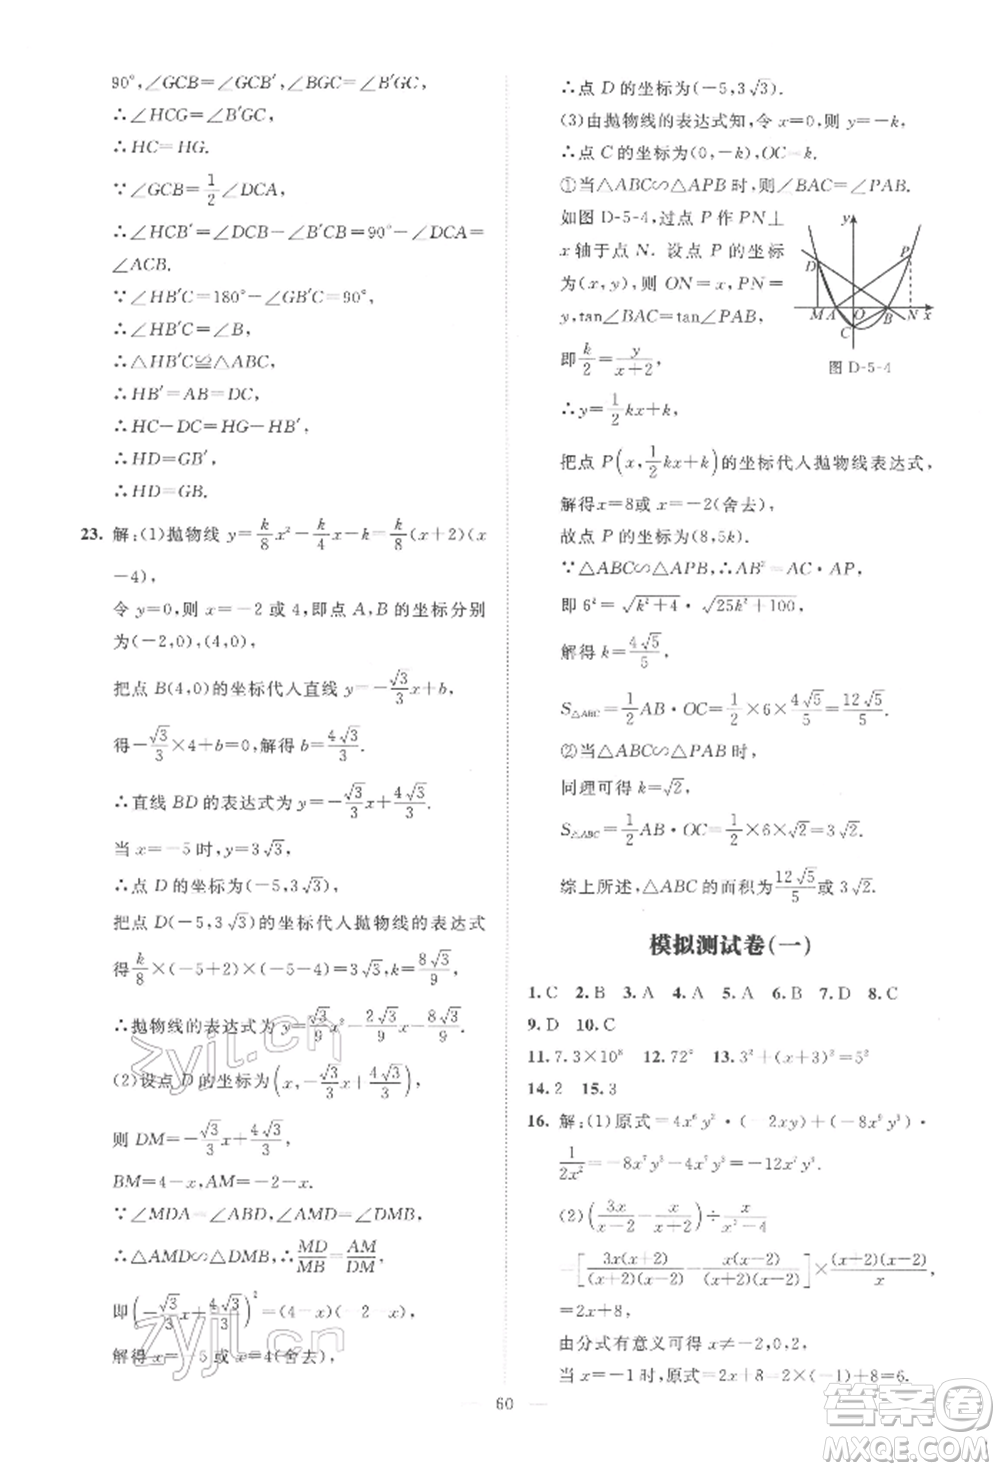 90°,∠GCB=∠GCB′,∠BGC=∠B′GC,
∴∠HCG=∠B′GC,
∴HC=HG.
∵∠GCB=1/2∠DCA,
∴∠HCB′=∠DCB-∠DCB′=90°-∠DCA=
∠ACB.
∴∠HB′C=180°-∠GB′C=90°,
∴∠HB′C=∠B,
∴△HB′C≌△ABC,
∴HB′=AB=DC,
∴HC-DC=HG-HB′,
∴HD=GB′.
∴HD=GB.
23. 解:(1)抛物线 y=k/8x²-k/4x-k=k/8(x+2)(x
-4),
令 y=0,解得 x=-2 或 4,即点 A,B 的坐标分别
为(-2,0),(4,0),
把点 B(4,0)的坐标代人直线 y=-√3/3x+b,
得-√3/3×4+b=0,解得 b=4√3/3.
∴直线 BD 的表达式为 y=-√3/3x+4√3/3.
当 x=-5 时,y=3√3,
∴点 D 的坐标为(-5,3√3),
把点 D(-5,3√3)的坐标代人抛物线的表达式
得k/8×(-5+2)(-5-4)=3√3,∴k=8√3/9,
∴抛物线的表达式为 y=√3/9x²-2√3/9x-8√3/9.
(2)设点 D 的坐标为(x,-√3/3x+4√3/3),
则 DM=-√3/3x+4√3/3,AM=-2-x,
BM=4-x,
∵∠MDA=∠ABD,∠AMD=∠DMB,
∴△AMD∽△DMB,∴MD/MB=AM/DM,
即(-√3/3x+4√3/3)²=(4-x)(-2-x)
解得 x=-5 或 x=4(舍去),
∴点 D 的坐标为(-5,3√3).
(3)由抛物线的表达式知,令 x=0,则 y=-k,
∴点 C 的坐标为(0,-k),OC=k.
①当△ABC∽△APB 时,则∠BAC=∠PAB.
如图 D-5-4,过点 P 作 PN⊥
x 轴于点 N. 设点 P 的坐标
为(x,y),则 ON=x,PN=
y,tan∠BAC=tan∠PAB,
即k/2=y/(x+2),
y
D
P
M A O B N x
C
图 D-5-4
∴y=1/2kx+k,
把点 P(x,1/2kx+k)的坐标代人抛物线表达式,
解得 x=8或 x=-2(舍去),
故点 P 的坐标为(8,5k).
∵△ABC∽△APB,∴AB²=AC·AP,
即 6²=√(k²+4)·√(25k²+100),
解得 k=4√5/5,
S△ABC=1/2AB·OC=1/2×6×4√5/5=12√5/5.
②当△ABC∽△PAB 时,
同理可得 k=√2,
S△ABC=1/2AB·OC=1/2×6×√2=3√2.
综上所述,△ABC 的面积为12√5/5或 3√2.
模拟测试卷(一)
1. C 2. B 3. A 4. A 5. A 6. B 7. D 8. C
9. D 10. C
11. 7.3×10⁸ 12. 72° 13. 3²+(x+3)²=5²
14. 2 15. 3
16. 解:(1)原式=4x⁶y²·(-2xy)+(-8x⁹y³)·
1/2x²=-8x⁷y³-4x⁷y³=-12x⁷y³.
(2)(3x/(x-2)-x/(x+2))÷x/(x²-4)
=[3x(x+2)/(x+2)(x-2)-x(x-2)/(x+2)(x-2)]×(x+2)(x-2)/x,
=2x+8,
由分式有意义可得 x≠-2,0,2,
当 x=-1时,原式=2x+8=2×(-1)+8=6.
60
zyjl.cn
zyjl.cn
答案卷
MXQE.COM